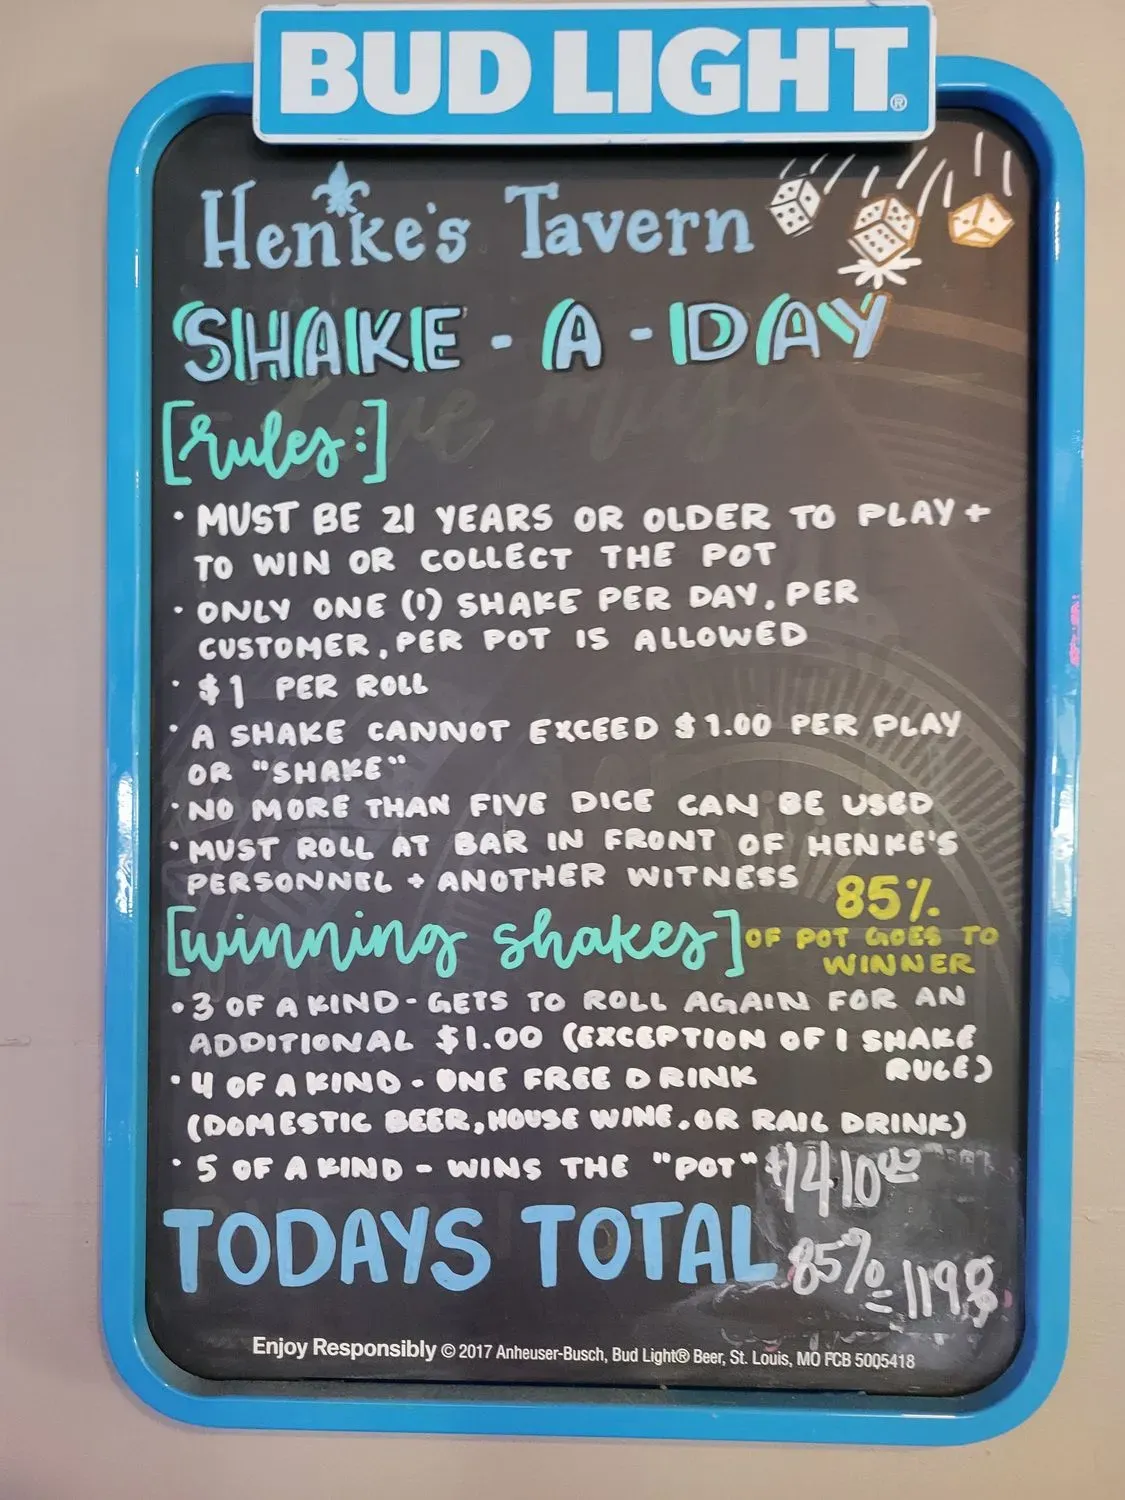 BUD LIGHT®
Henke's Tavern
SHAKE-A-DAY
[rules:]
• MUST BE 21 YEARS OR OLDER TO PLAY +
TO WIN OR COLLECT THE POT
• ONLY ONE (1) SHAKE PER DAY, PER
CUSTOMER, PER POT IS ALLOWED
• $1 PER ROLL
• A SHAKE CANNOT EXCEED $1.00 PER PLAY
OR "SHAKE"
• NO MORE THAN FIVE DICE CAN BE USED
• MUST ROLL AT BAR IN FRONT OF HENKE'S
PERSONNEL + ANOTHER WITNESS
[winning shakes]
85%
OF POT GOES TO
WINNER
• 3 OF A KIND - GETS TO ROLL AGAIN FOR AN
ADDITIONAL $1.00 (EXCEPTION OF 1 SHAKE
RULE)
• 4 OF A KIND - ONE FREE DRINK
(DOMESTIC BEER, HOUSE WINE, OR RAIL DRINK)
• 5 OF A KIND - WINS THE "POT"
$1410.00
TODAYS TOTAL
85% = 1198
Enjoy Responsibly © 2017 Anheuser-Busch, Bud Light® Beer, St. Louis, MO FCB 5005418